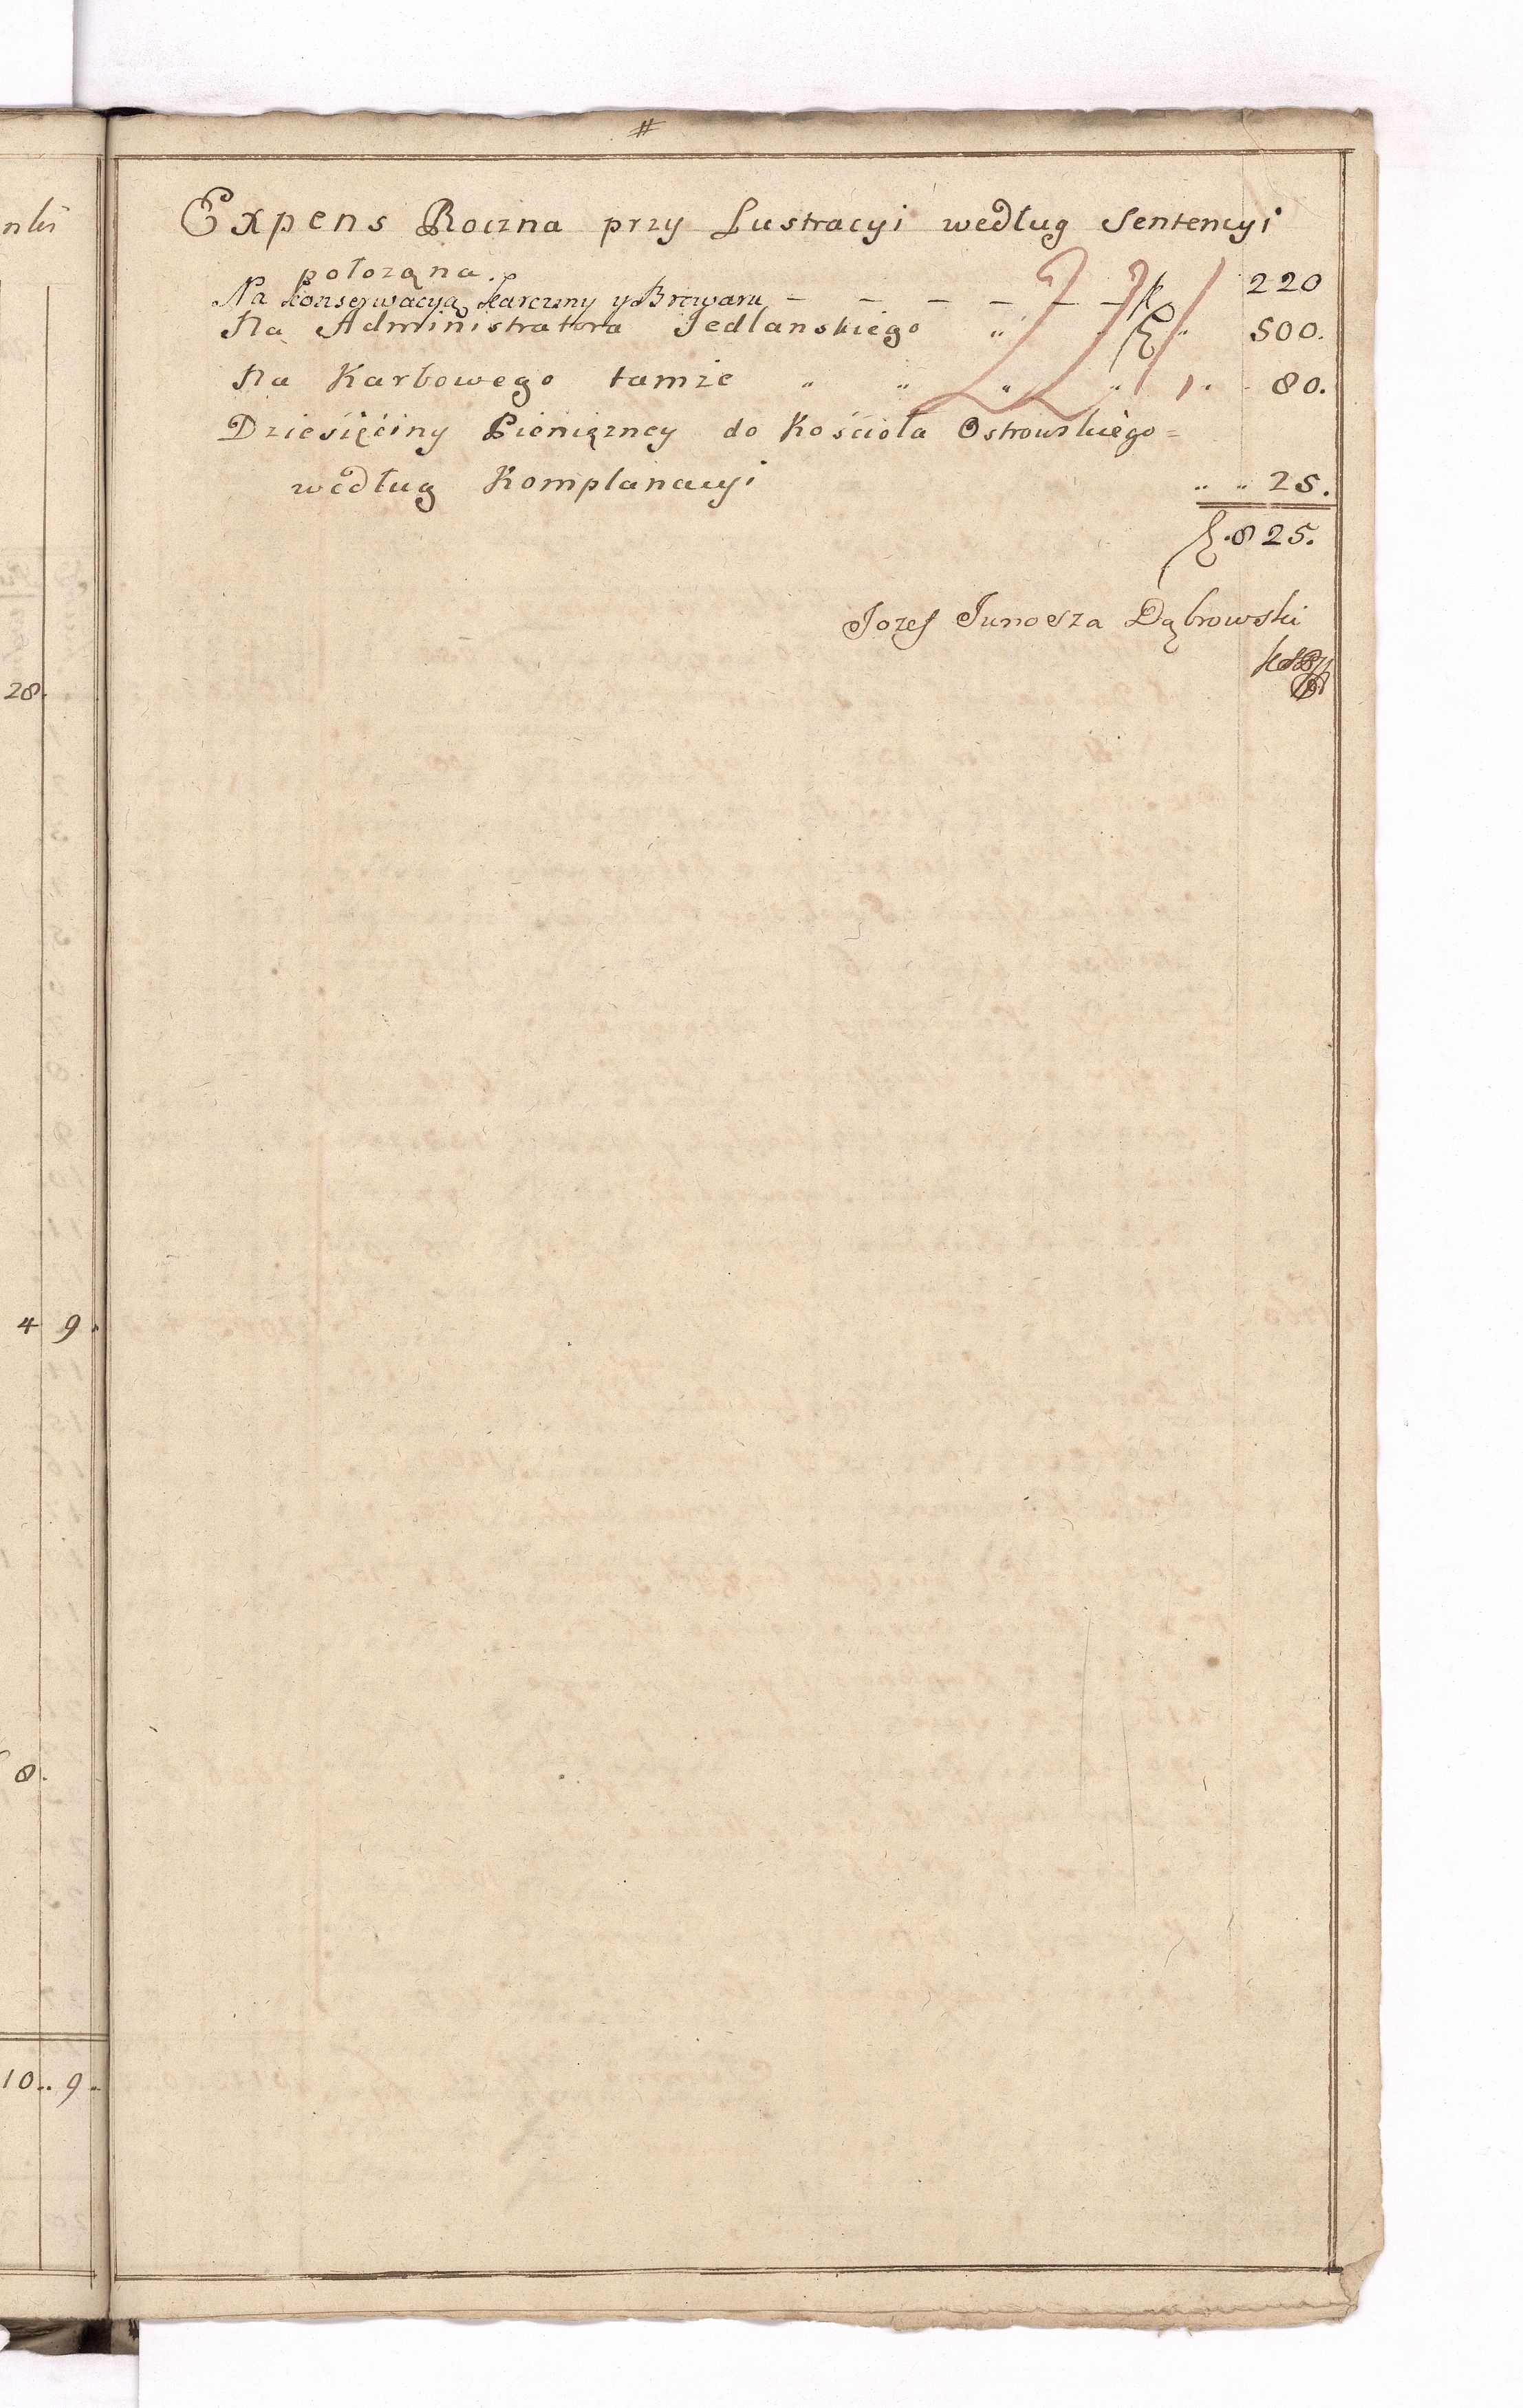 #
Expens Roczna przy Lustracyi według Sentencyi
położąna.
Na Konserwacyą Karczmy y Browaru — — — — — — 220
Na Administratora Jedlanskiego „ „ „ 500.
Na Karbowego tamże „ „ „ „ „ 80.
Dziesięćiny Pieniązney do Kościoła Ostrowskiego =
według Komplanacyi „ „ 25.
825.
Jozef Junosza Dąbrowski
nki
28.
4 9.
8.
10.. 9..